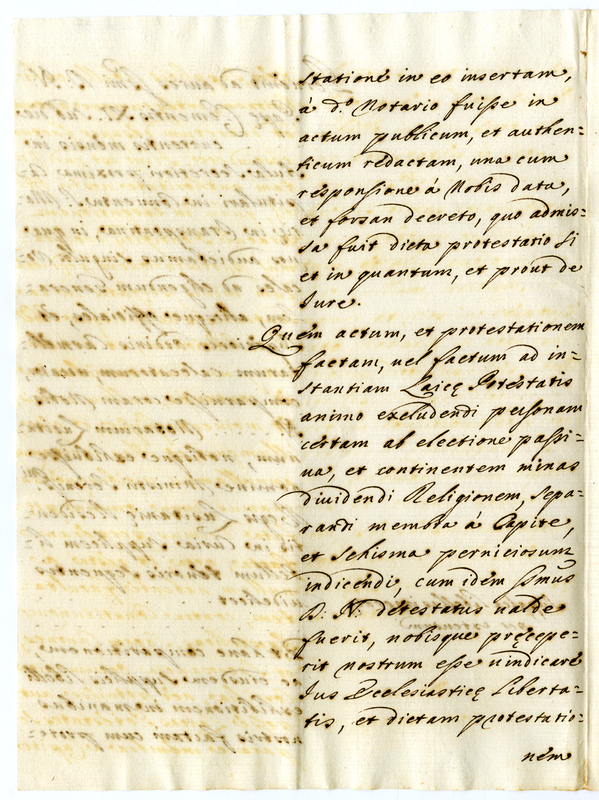 statione in eo insertam,
à d.º Notario fuisse in
actum publicum, et authen=
ticum redactam, una cum
responsione à Nobis data,
et forsan decreto, quo admis=
sa fuit dicta protestatio si
et in quantum, et prout de
Jure.
Quem actum, et protestationem
factam, uel factum ad in=
stantiam Laicę Potestatis
animo excludendi personam
certam ab electione passi=
ua, et continentem minas
diuidendi Religionem, sepa=
randi membra à Capite,
et schisma perniciosum
indicendi, cum idem ssmus
D: N: detestatus ualde
fuerit, nobisque pręcepe=
rit nostrum esse uindicare
Jus Ecclesiasticę Liberta=
tis, et dictam protestatio=
nem